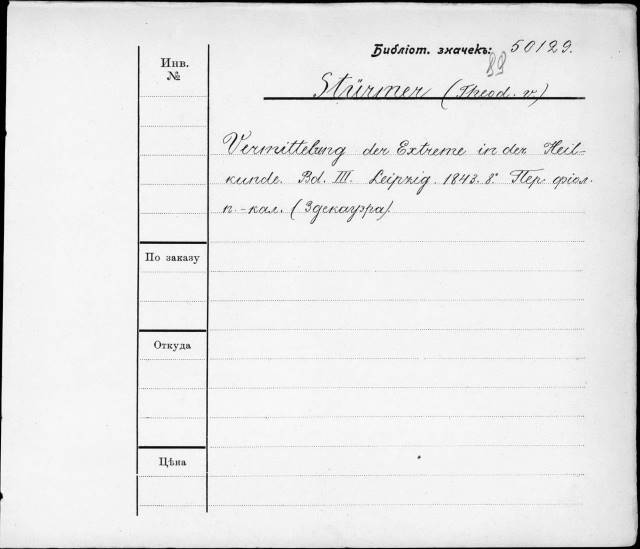 Библіот. значекъ: 50129.
89
Инв.
№
Stürmer (Theod. v.)
Vermittelung der Extreme in der Heil-
kunde. Bd. III. Leipzig. 1843. 8° Пер. фіол.
п.-кал. (Здекауэра).
По заказу
Откуда
Цѣна